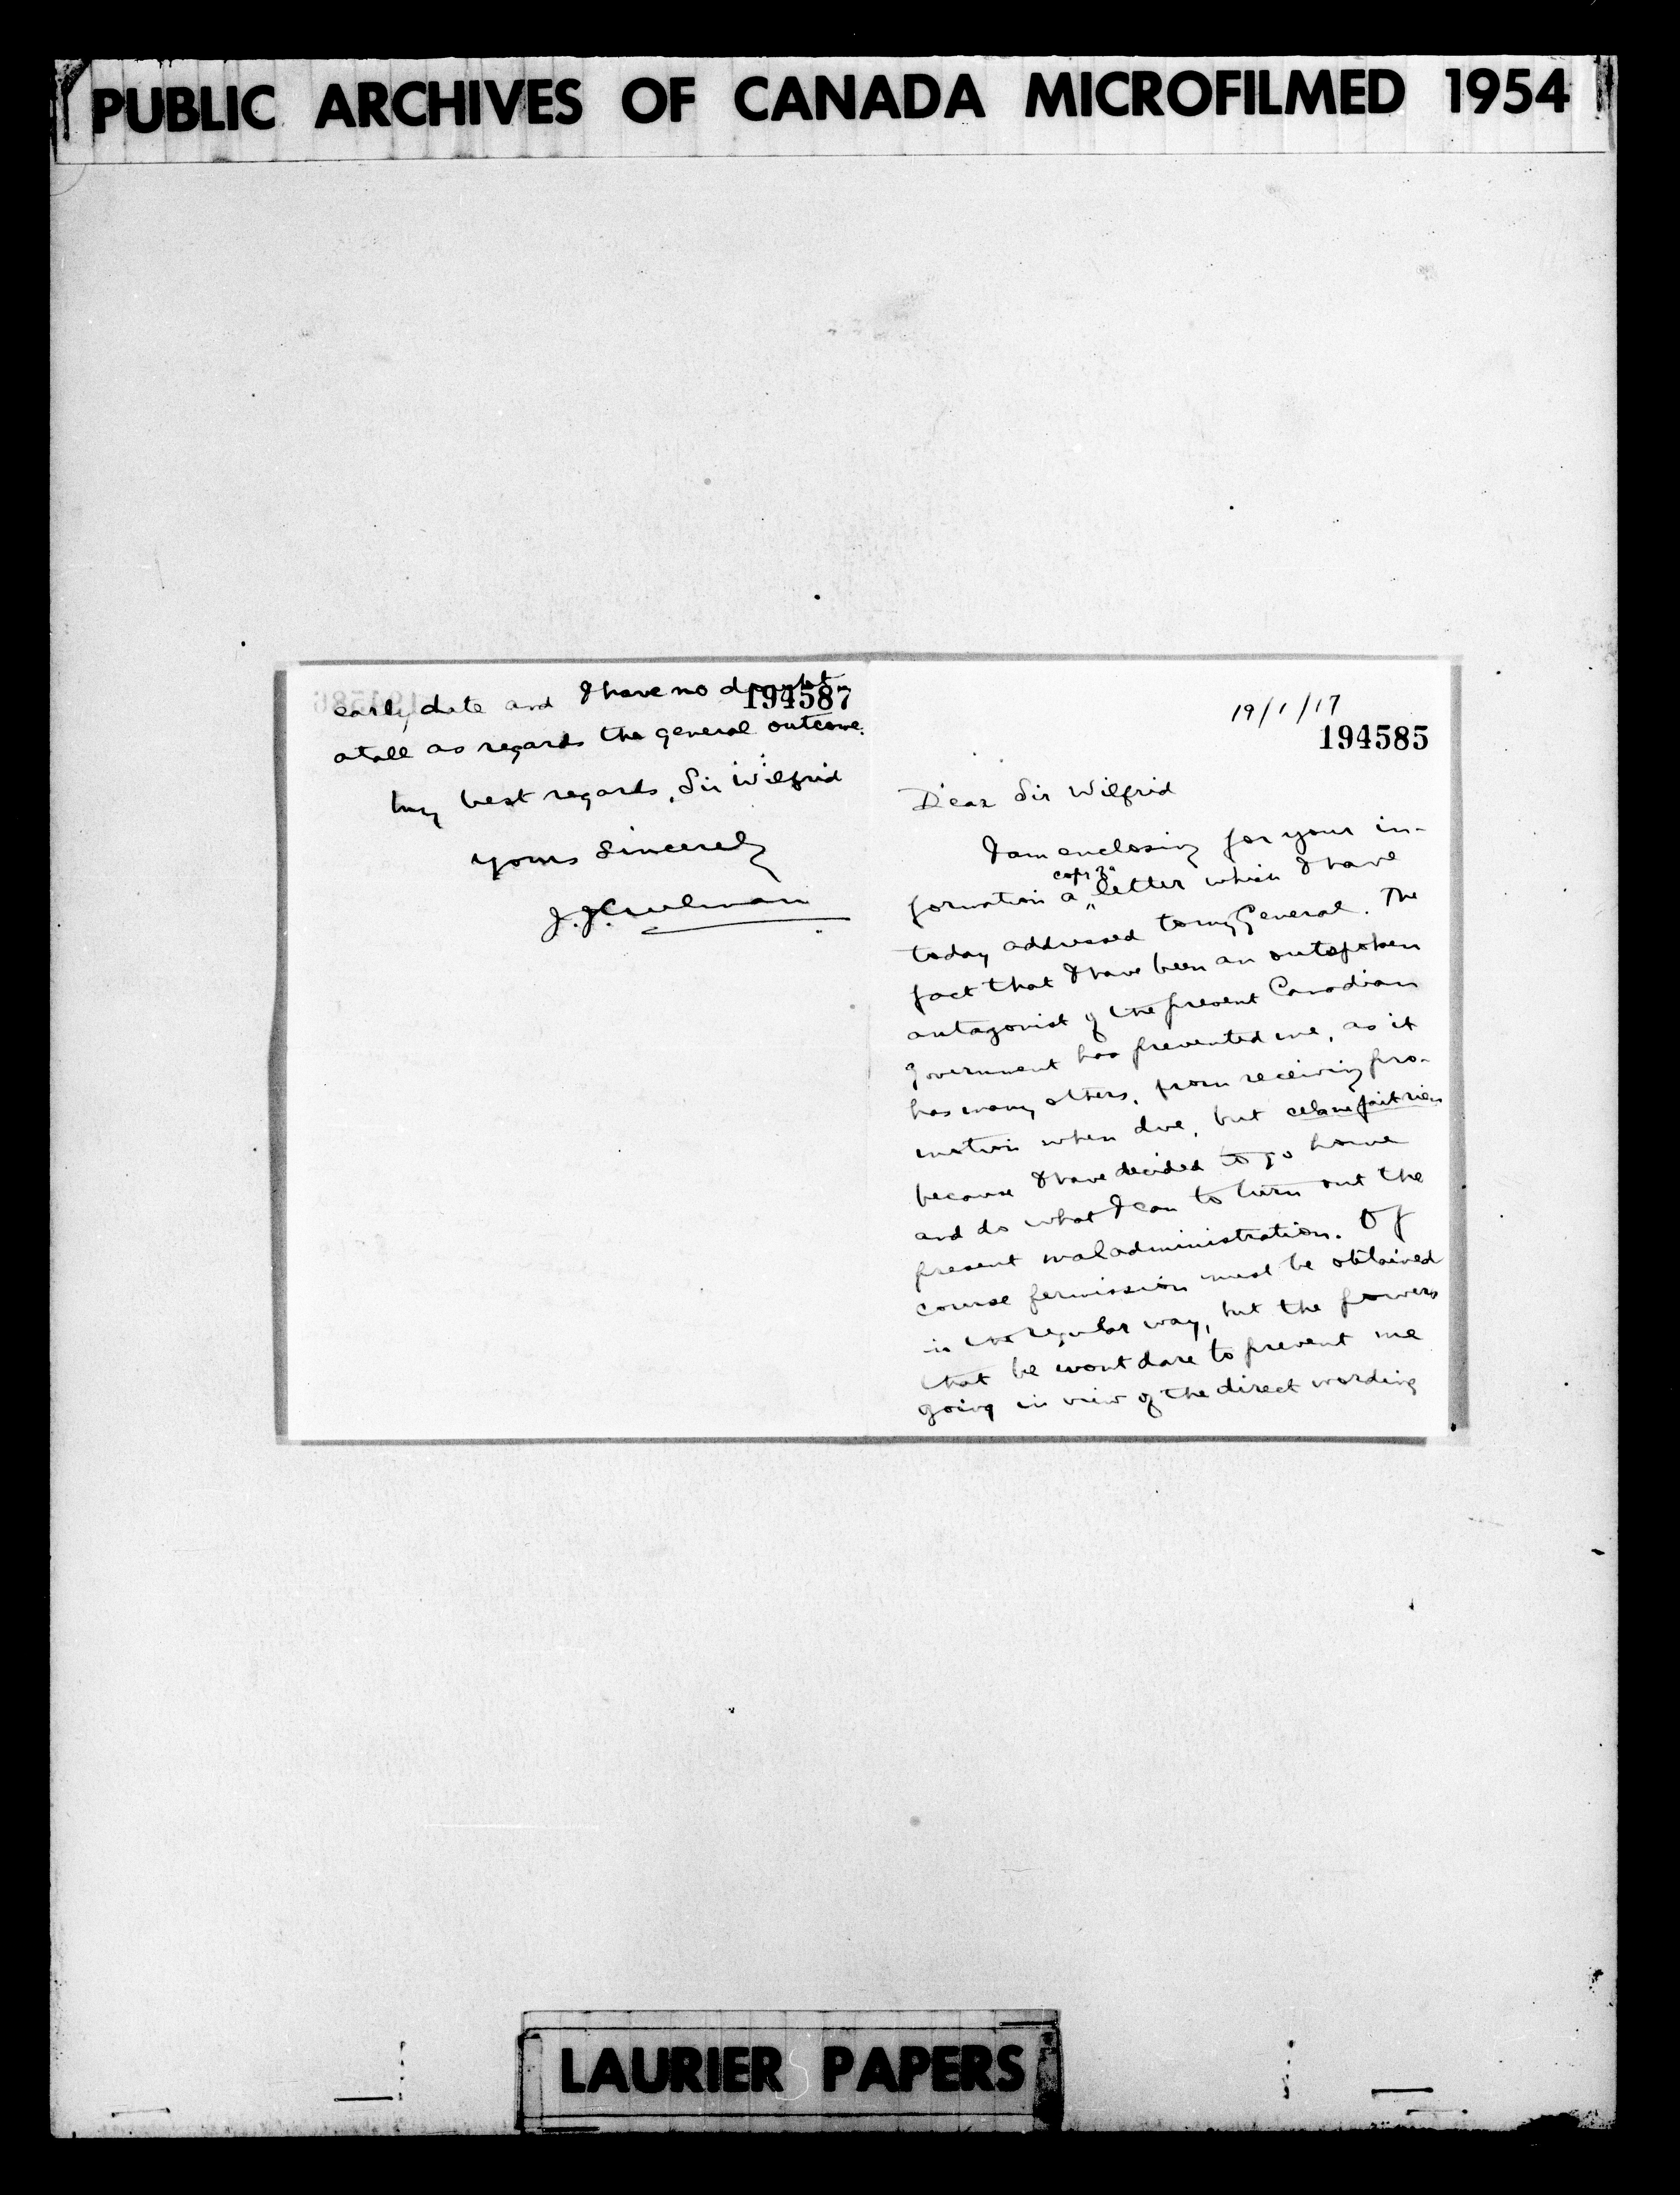 PUBLIC ARCHIVES OF CANADA MICROFILMED 1954
194587
early date and I have no doubt
atall as regards the general outcome.
My best regards, Sir Wilfrid
Yours Sincerely
J.J. Creelman
19/1/17
194585
Dear Sir Wilfrid
I am enclosing for your in-
formation a copy of letter which I have
today addressed to my General. The
fact that I have been an outspoken
antagonist of the present Canadian
Government has prevented me, as it
has many others, from receiving pro-
motion when due, but cela ne fait rien
because I have decided to go home
and do what I can to turn out the
present maladministration. Of
course permission must be obtained
in the regular way, but the powers
that be wont dare to prevent me
going in view of the direct wording
LAURIER PAPERS